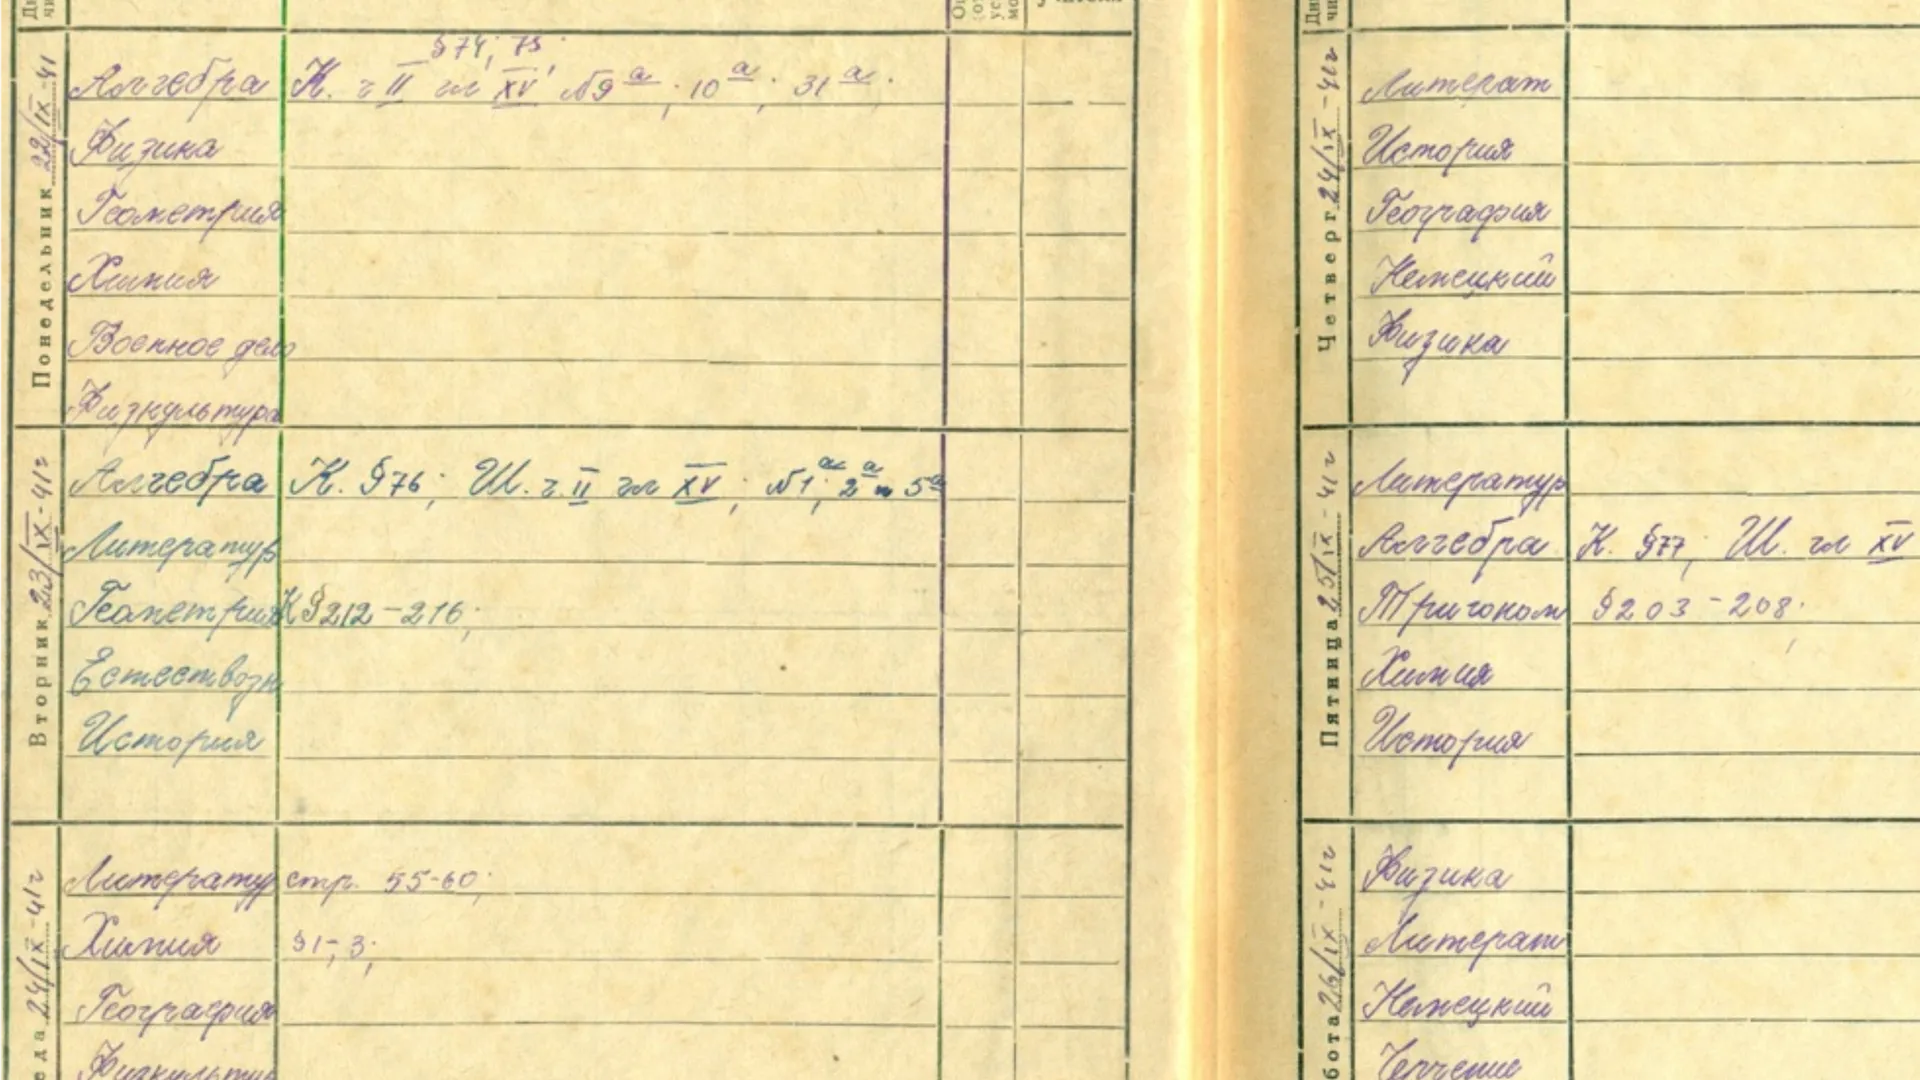 Понедельник 22/IX-41
§ 74; 75.
Алгебра К. ч II гл XV №9а; 10а; 31а.
Физика
Геометрия
Химия
Военное дело
Физкультура
Вторник 23/IX-41г
Алгебра К. §76; Ш. ч II гл XV; №1а; 2а и 5а
Литератур
Геометрия К §212-216;
Естествозн
История
еда 24/IX-41г
Литератур стр. 55-60;
Химия §1-3;
География
Физкультур
Четверг 24/IX-41г
Литерат
История
География
Немецкий
Физика
Пятница 25/IX-41г
Литератур
Алгебра К. §77; Ш. гл XV
Тригоном §203-208;
Химия
История
бота 26/IX-41г
Физика
Литерат
Немецкий
Черчение